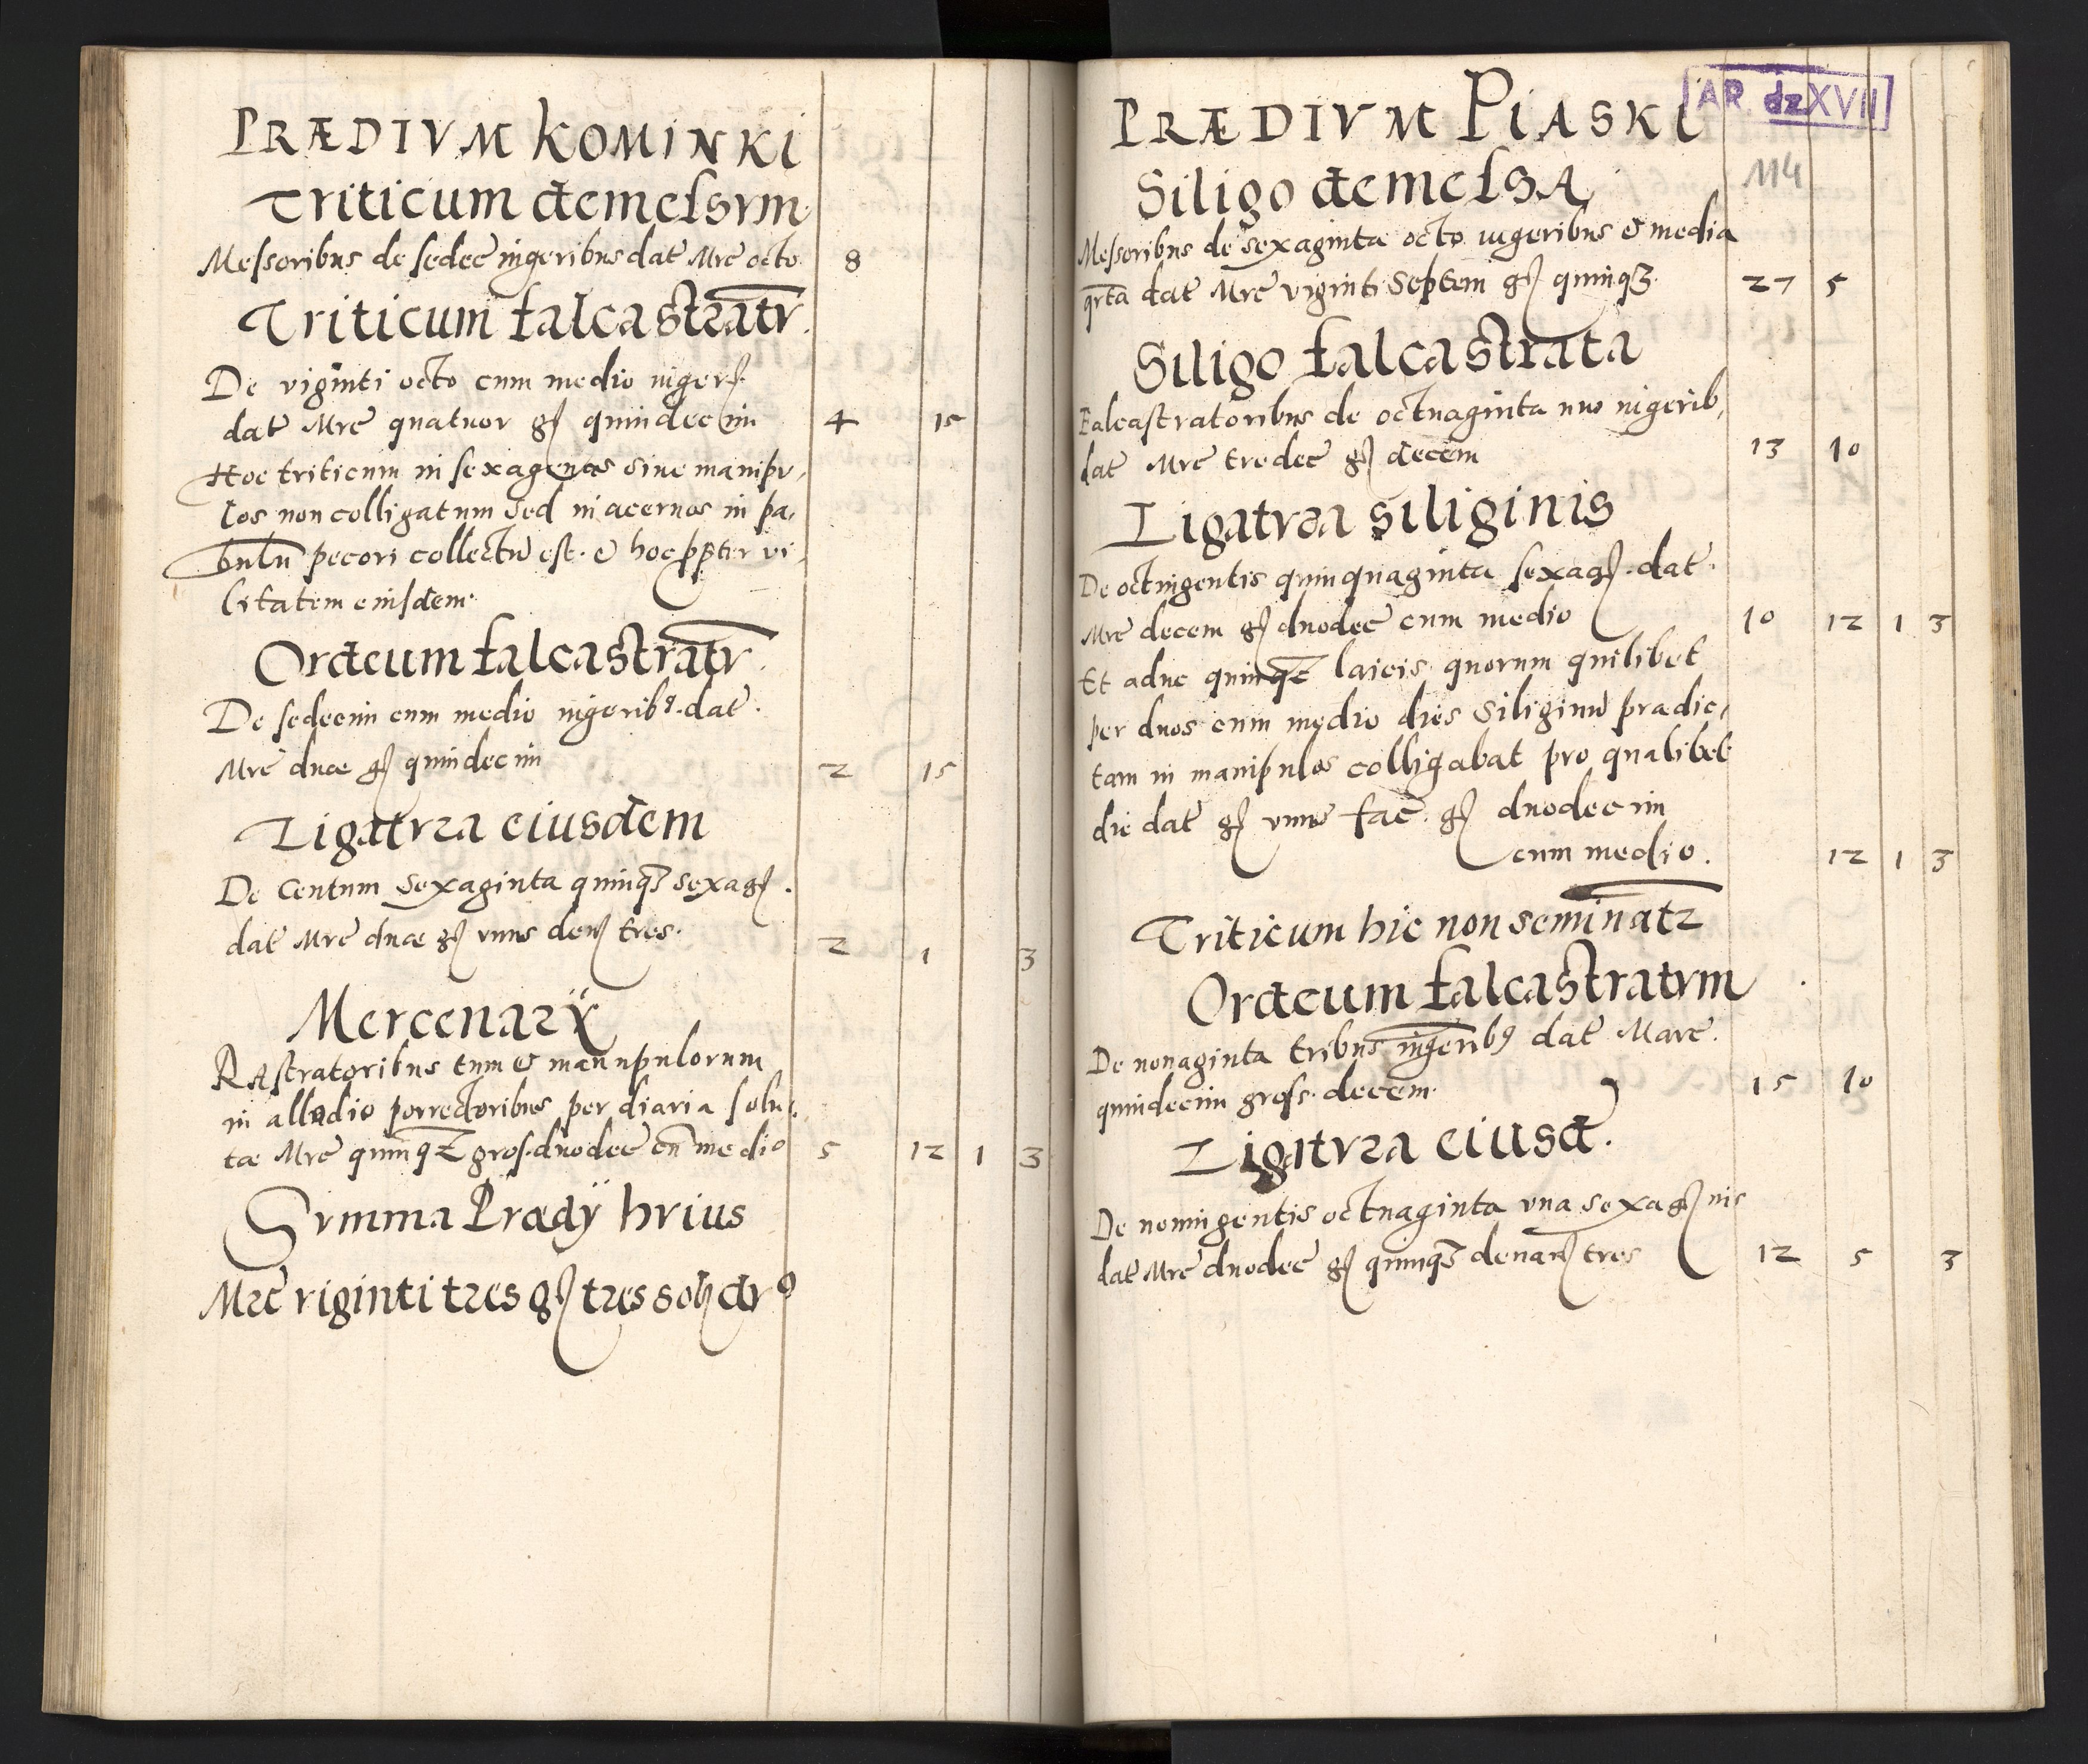 PRÆDIVM KOMINKI
Triticum demessvm
Messoribus de sedec iugeribus dat Mrc octo 8
Triticum falcastratv.
De viginti octo cum medio iuger.
dat Mrc quatuor g quindecim 4 15
Hoc triticum in sexagenas siue manipu,
los non colligatum sed in aceruos in pa,
bulu pecori collectu est. & hoc ppter vi,
litatem eiusdem.
Ordeum falcastratv.
De sedecim cum medio iugerib9. dat.
Mrc duæ g quindecim 2 15
Ligatvra eiusdem
De Centum Sexaginta quinq3 sexag.
dat Mrc duæ g vnus den tres. 2 1 3
Mercenarÿ
Rastratoribus tum & manupulorum
in allodio porrectoribus per diaria solu,
tæ Mrc quinq3 gros. duodec cu medio 5 12 1 3
Svmma Prædÿ hvius
Mrc viginti tres g tres sol dv9
PRÆDIVM PIASKI
AR dzXVII
114
Siligo demessa
Messoribus de sexaginta octo iugeribus & media
qrta dat Mrc viginti Septem g quinq3. 27 5
Siligo falcastrata
Falcastratoribus de octuaginta uno iugerib,
dat Mrc tredec g decem 13 10
Ligatvra siliginis
De octingentis quinquaginta sexag. dat.
Mrc decem g duodec cum medio 10 12 1 3
Et aduc quinq3 laicis quorum quilibet
per duos cum medio dies Siliginu prædic,
tam in manipulos colligabat pro qualibet
die dat g vnus fac. g duodecim
cum medio. 12 1 3
Triticum hic non seminatv
Ordeum falcastratvm
De nonaginta tribus iugerib9 dat Marc.
quindecim gross. decem. 15 10
Ligatvra eiusd.
De noningentis octuaginta vna sexag nis
dat Mrc duodec g quinq3 denar tres 12 5 3